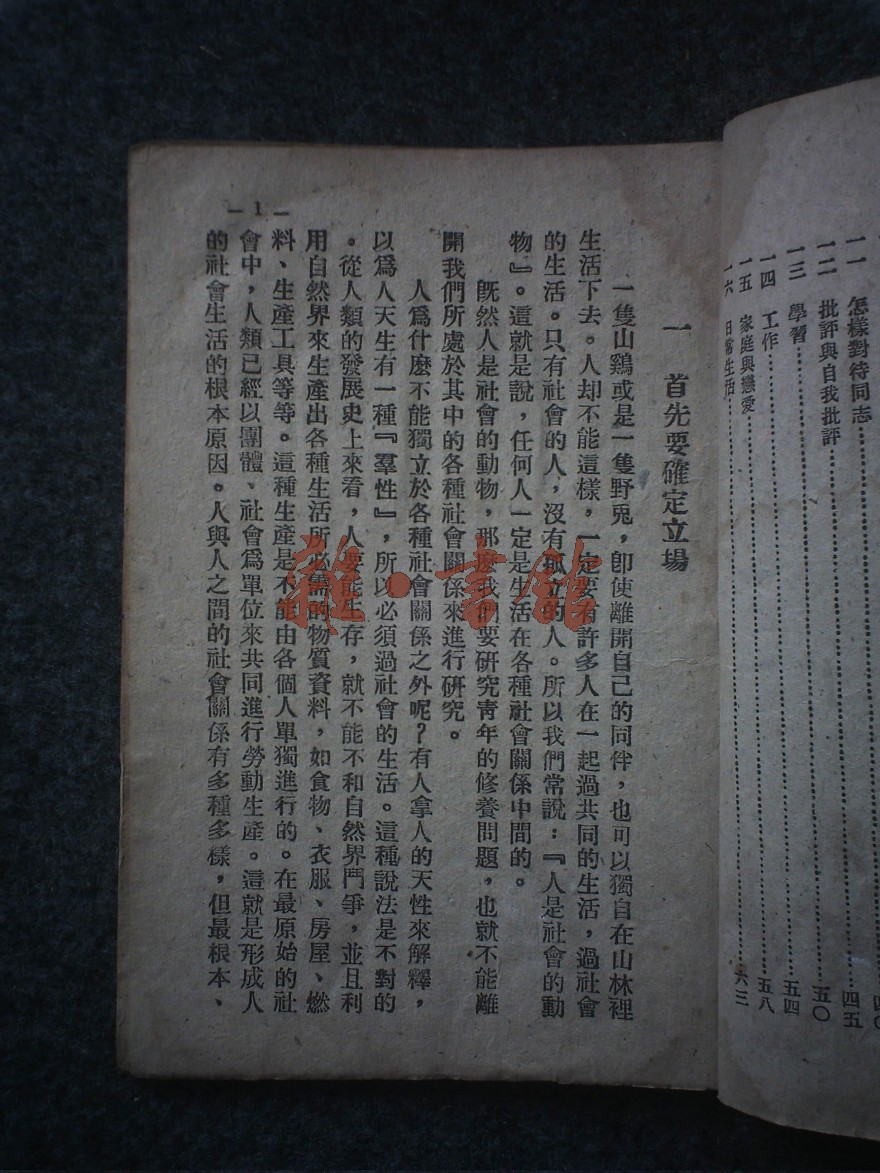 一一 怎樣對待同志……四五
一二 批評與自我批評……五〇
一三 學習……五四
一四 工作……五八
一五 家庭與戀愛……六三
一六 日常生活
一 首先要確定立場
一隻山鷄或是一隻野兎，卽使離開自己的同伴，也可以獨自在山林裡
生活下去。人却不能這樣，一定要有許多人在一起過共同的生活，過社會
的生活。只有社會的人，沒有孤立的人。所以我們常說：『人是社會的動
物』。這就是說，任何人一定是生活在各種社會關係中間的。
旣然人是社會的動物，那麽我們要硏究靑年的修養問題，也就不能離
開我們所處於其中的各種社會關係來進行硏究。
人爲什麽不能獨立於各種社會關係之外呢？有人拿人的天性來解釋，
以爲人天生有一種『羣性』，所以必須過社會的生活。這種說法是不對的
。從人類的發展史上來看，人要能生存，就不能不和自然界鬥爭，並且利
用自然界來生產出各種生活所必需的物質資料，如食物、衣服、房屋、燃
料、生產工具等等。這種生產是不能由各個人單獨進行的。在最原始的社
會中，人類已經以團體、社會爲單位來共同進行勞動生產。這就是形成人
的社會生活的根本原因。人與人之間的社會關係有多種多樣，但最根本、
— 1 —
雜·書館